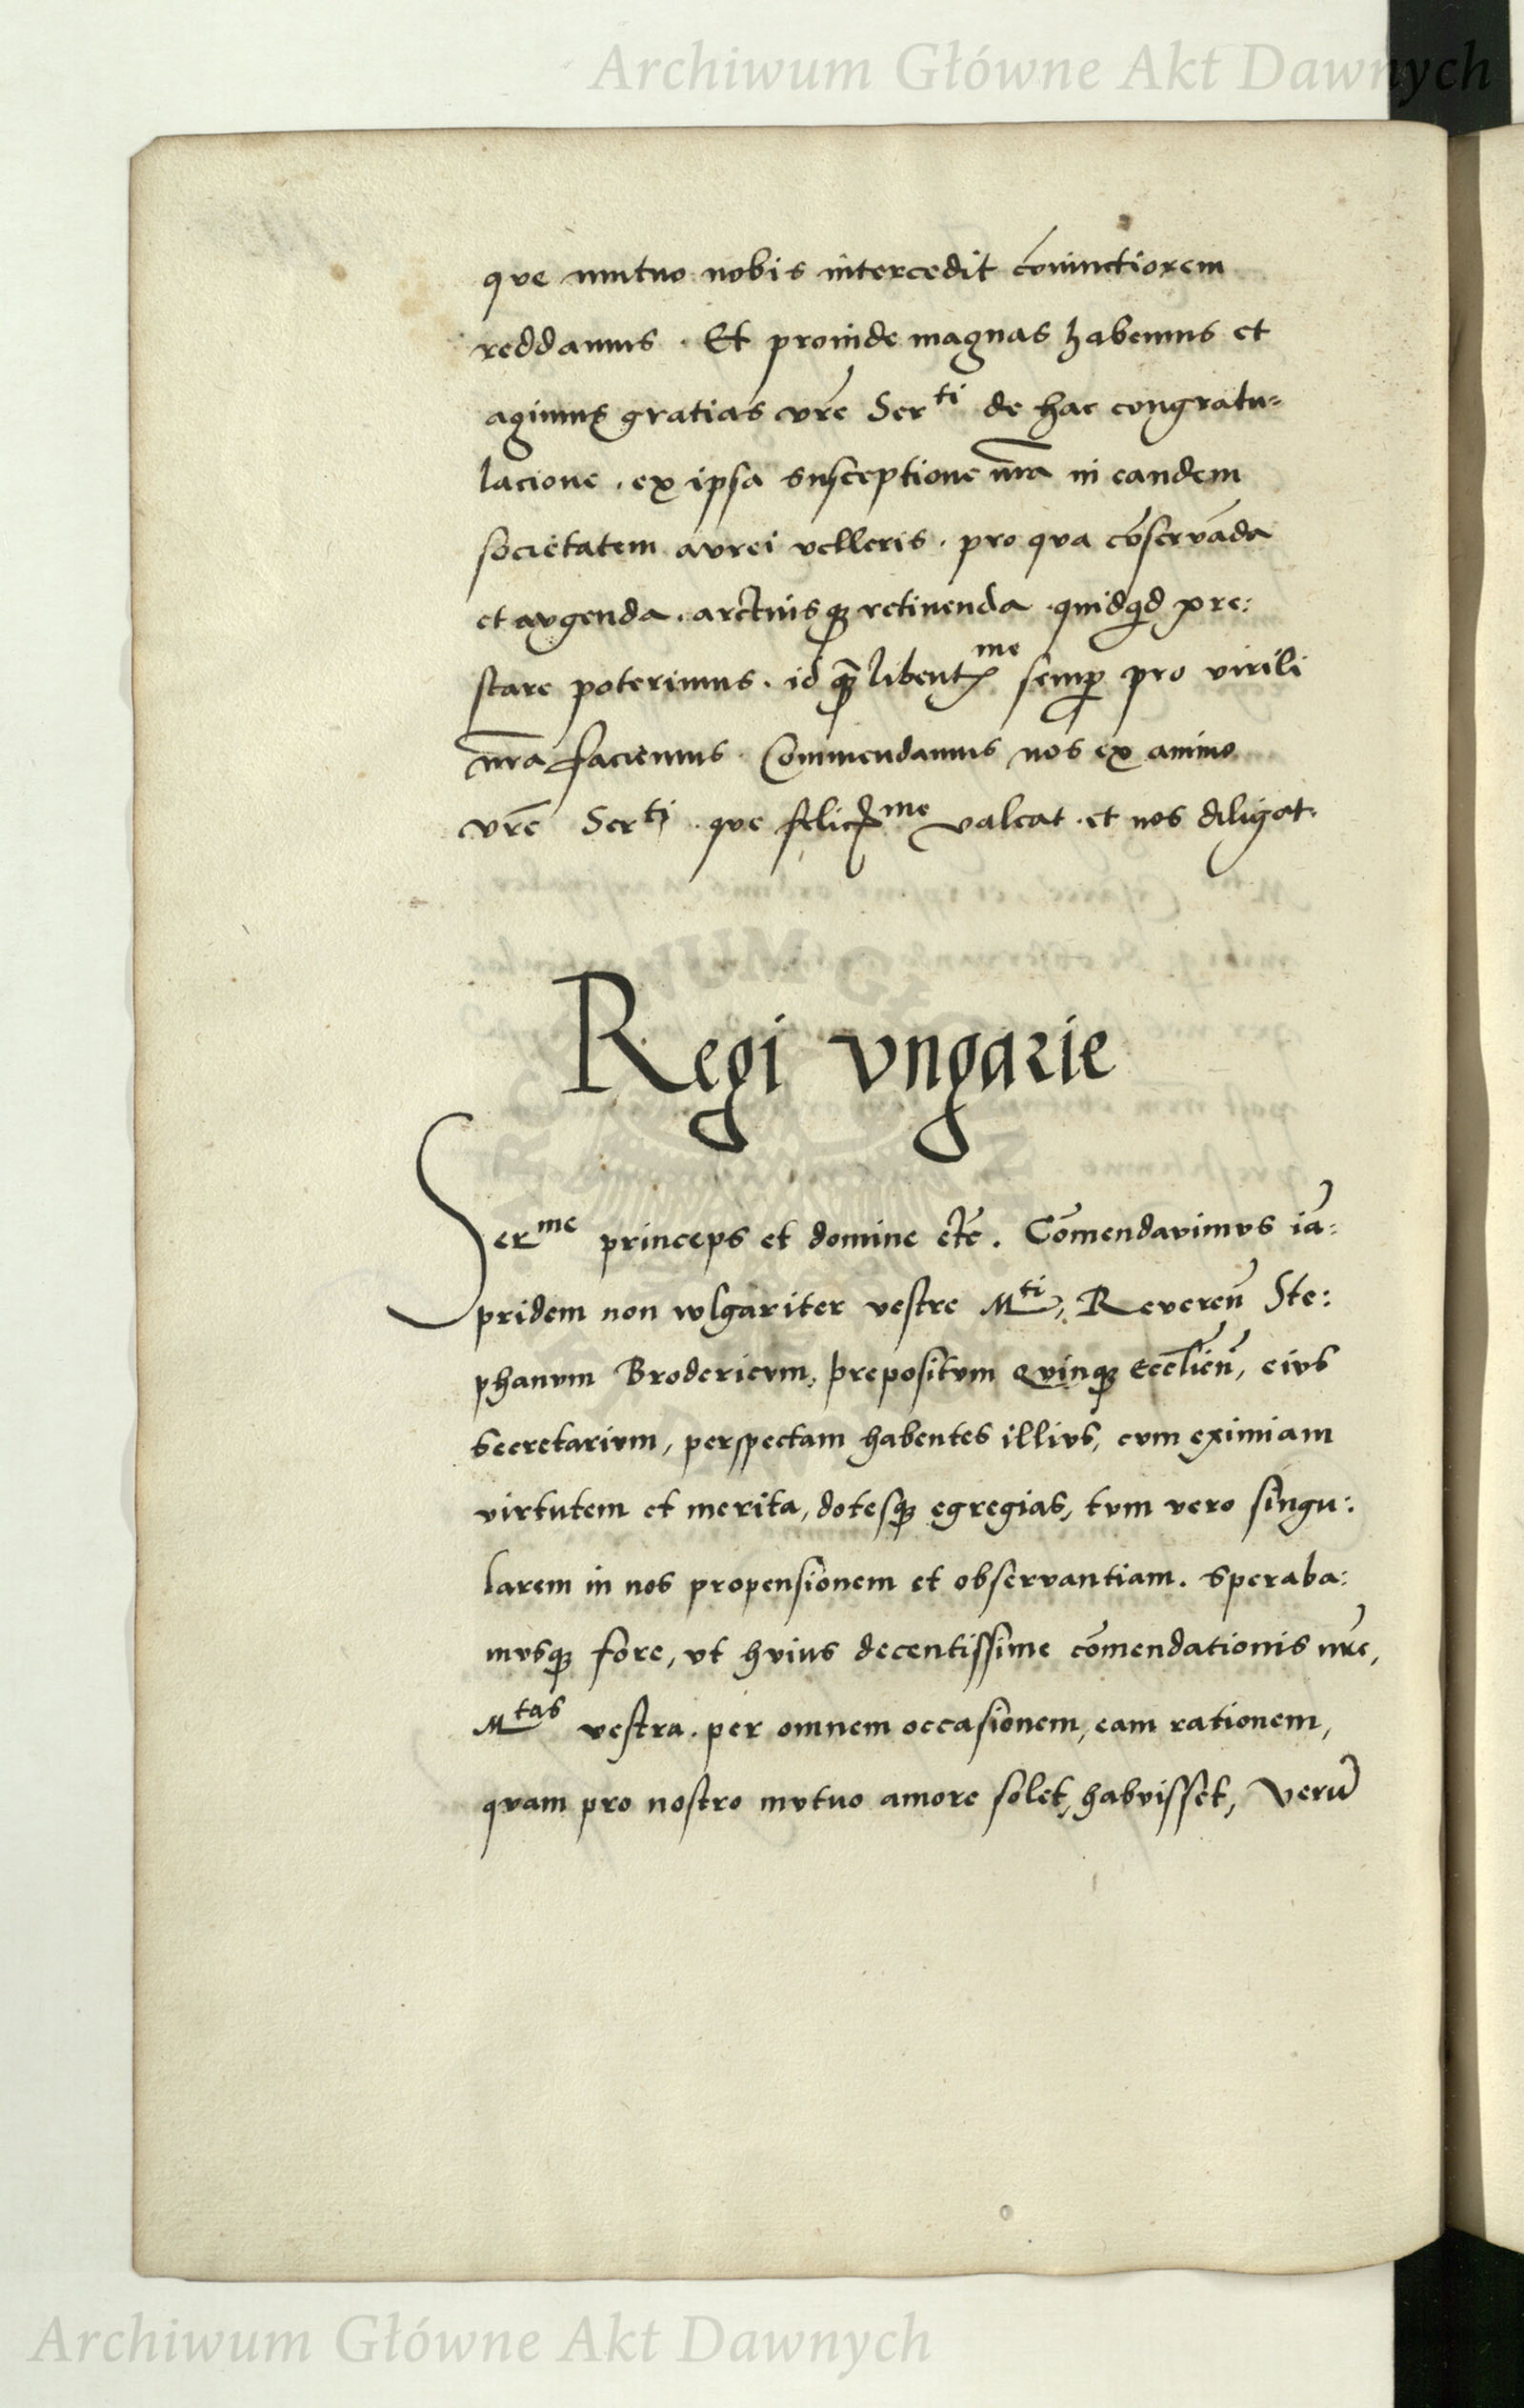 Archiwum Główne Akt Dawnych
que mutuo nobis intercedit cōiunctiorem
reddamus . Et proinde magnas habemus et
agimus gratias vr̄e Ser^ti de hac congratu=
lacione . ex ipsa susceptione nr̄a in eandem
societatem aurei velleris . pro qua cōservāda
et augenda . arctiusqꝫ retinenda . quidqd pre:
stare poterimus . id qꝫ libent^me semꝑ pro virili
nr̄a faciemus . Commendamus nos ex animo
vr̄e Ser^ti . que felic^me valeat . et nos diligat .
Regi vngarie
Ser^me princeps et domine etc̄ . Cōmendavimvs iā:
pridem non wlgariter vestre M^ti, Reveren̄ Ste:
phanvm Brodericvm, prepositvm Qvinqꝫ Eccl̄ien̄, eivs
secretarivm, perspectam habentes illivs, cvm eximiam
virtutem et merita, dotesqꝫ egregias, tvm vero singu:
larem in nos propensionem et observantiam . Speraba:
mvsqꝫ fore, vt hvius decentissime cōmendationis nr̄e,
M^tas vestra . per omnem occasionem, eam rationem,
qvam pro nostro mvtuo amore solet, habvisset, Verū
Archiwum Główne Akt Dawnych